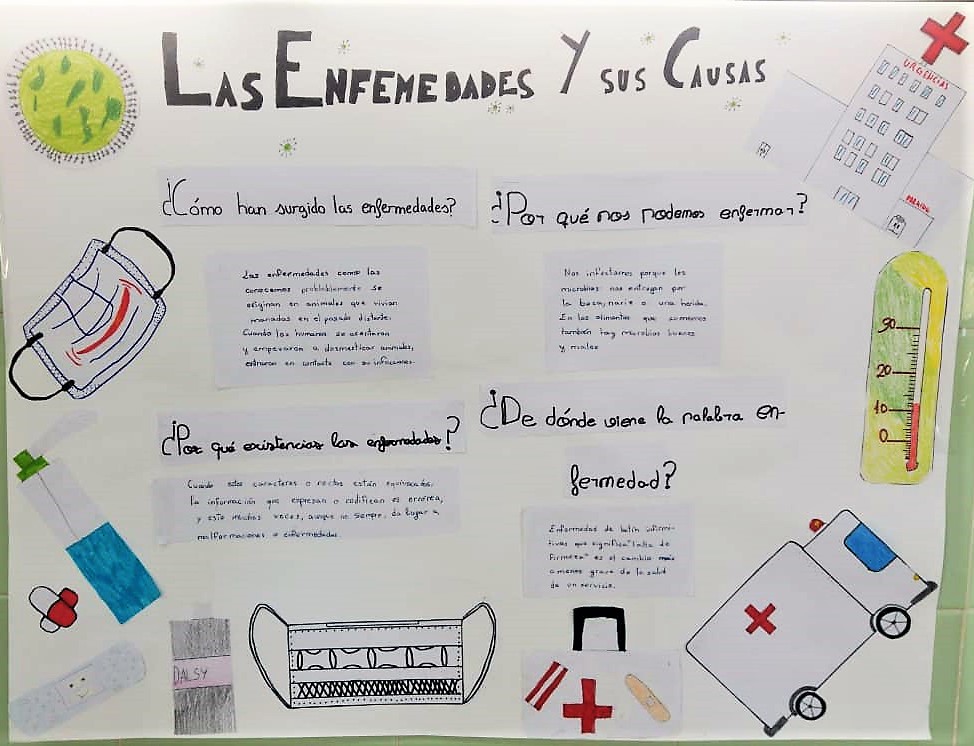 LAS ENFEMEDADES Y SUS CAUSAS
URGENCIAS
¿Cómo han surgido las enfermedades?
Las enfermedades como las
conocemos probablemente se
originan en animales que vivian
manadas en el pasado distante.
Cuando los humanos se asentaron
y empezaron a domesticar animales,
entraron en contacto con su infecciones.
¿Por qué nos podemos enfermar?
Nos infectamos porque los
microbios nos entragan por
la boca, nariz o una herida.
En los alimentos que comemos
también hay microbios buenos
y malos
30
20
10
0
¿Por qué existencias las enfermedades?
Cuando estos caracteres o rectos están equivocados,
la información que expresan o codifican es errónea,
y esto muchas veces, aunque no siempre, da lugar a
malformaciones o enfermedades.
¿De dónde viene la palabra en-
fermedad?
Enfermedas de latín infirmi-
tivas que significa "falta de
firmeza" es el cambio mas
o menos grave de la salud
de un servicio.
DALSY